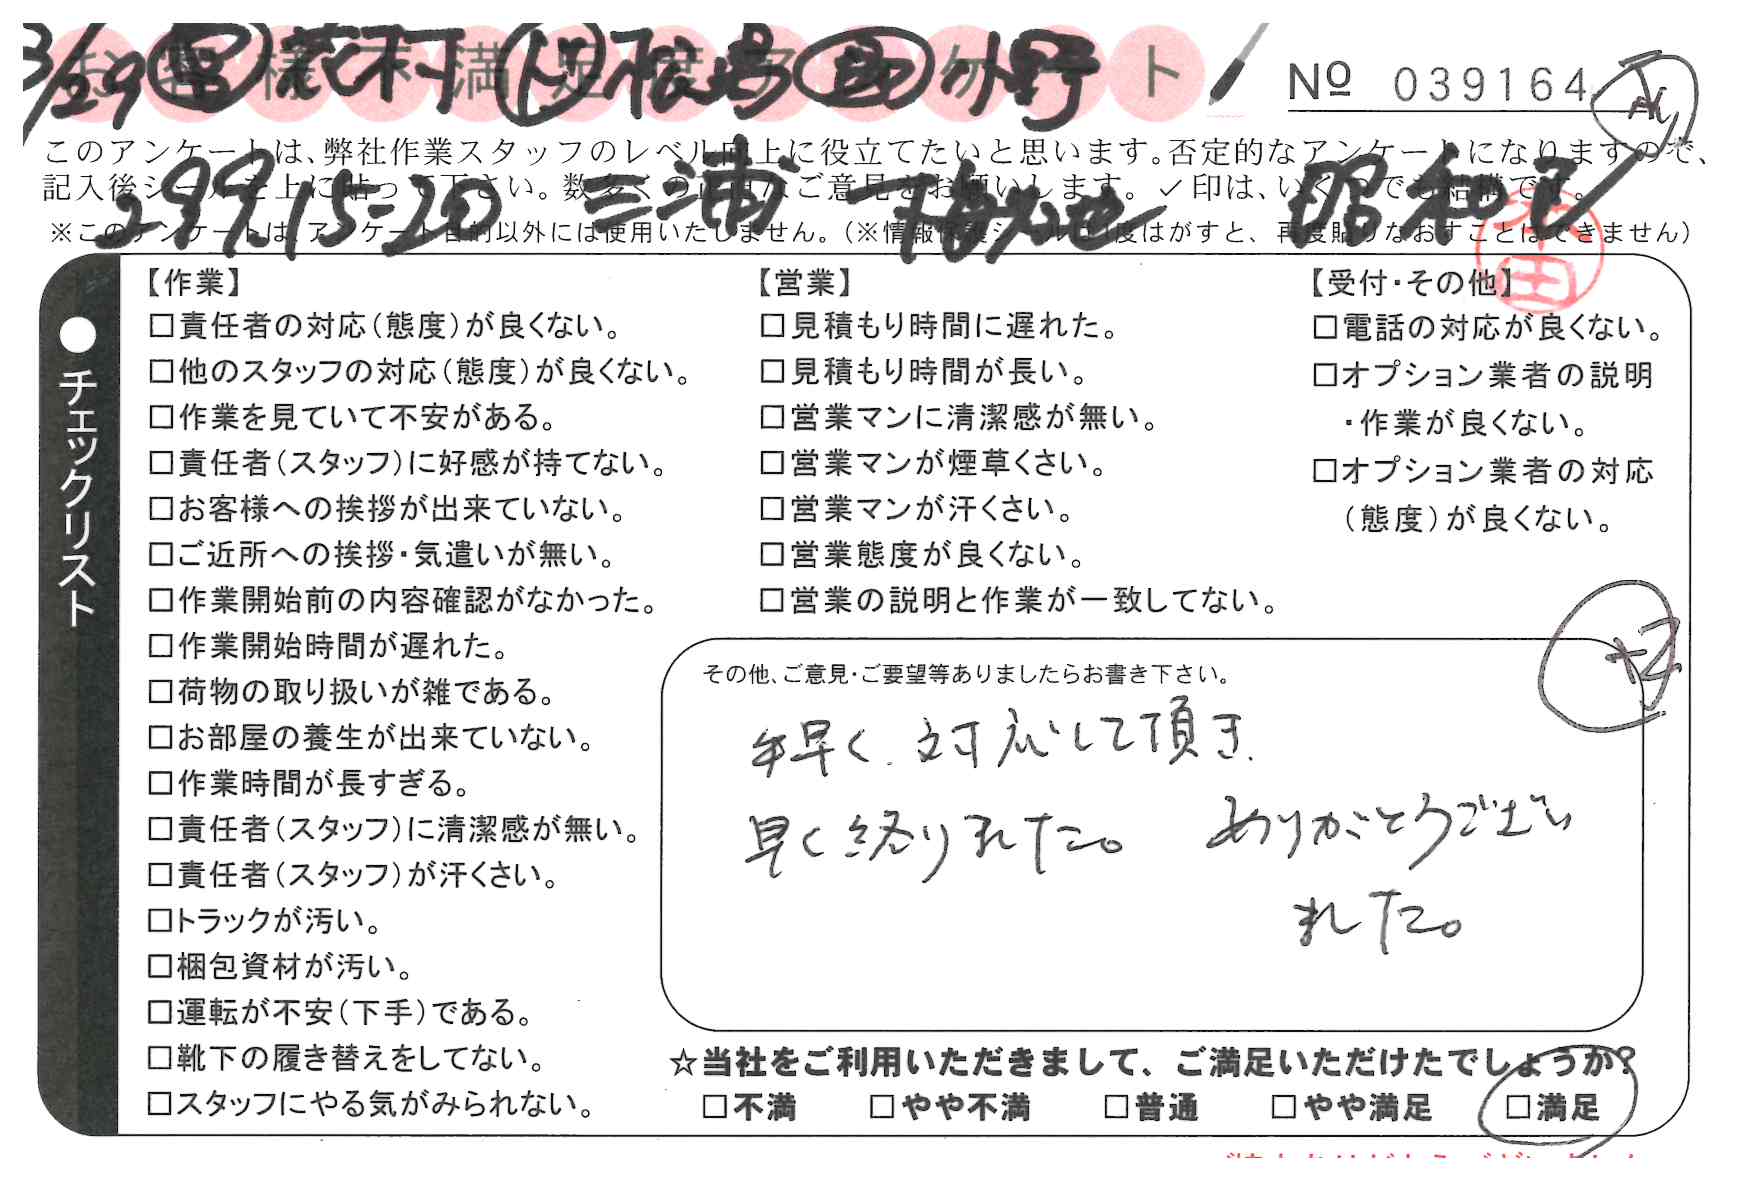 お客様不満足度アンケート
3/29
Nº 039164
このアンケートは、弊社作業スタッフのレベル向上に役立てたいと思います。否定的なアンケートになりますので、
記入後シールを上に貼って下さい。数多くの正直なご意見をお願いします。✓印は、いくつでも結構です。
※このアンケートは、アンケート目的以外には使用いたしません。（※情報保護シールは1度はがすと、再度貼りなおすことはできません）
29915-20 三浦
●チェックリスト
【作業】
□責任者の対応（態度）が良くない。
□他のスタッフの対応（態度）が良くない。
□作業を見ていて不安がある。
□責任者（スタッフ）に好感が持てない。
□お客様への挨拶が出来ていない。
□ご近所への挨拶・気遣いが無い。
□作業開始前の内容確認がなかった。
□作業開始時間が遅れた。
□荷物の取り扱いが雑である。
□お部屋の養生が出来ていない。
□作業時間が長すぎる。
□責任者（スタッフ）に清潔感が無い。
□責任者（スタッフ）が汗くさい。
□トラックが汚い。
□梱包資材が汚い。
□運転が不安（下手）である。
□靴下の履き替えをしてない。
□スタッフにやる気がみられない。
【営業】
□見積もり時間に遅れた。
□見積もり時間が長い。
□営業マンに清潔感が無い。
□営業マンが煙草くさい。
□営業マンが汗くさい。
□営業態度が良くない。
□営業の説明と作業が一致してない。
【受付・その他】
□電話の対応が良くない。
□オプション業者の説明
・作業が良くない。
□オプション業者の対応
（態度）が良くない。
+2
その他、ご意見・ご要望等ありましたらお書き下さい。
手早く、対応して頂き、
早く終りました。 ありがとうござい
ました。
☆当社をご利用いただきまして、ご満足いただけたでしょうか？
□不満 □やや不満 □普通 □やや満足 □満足